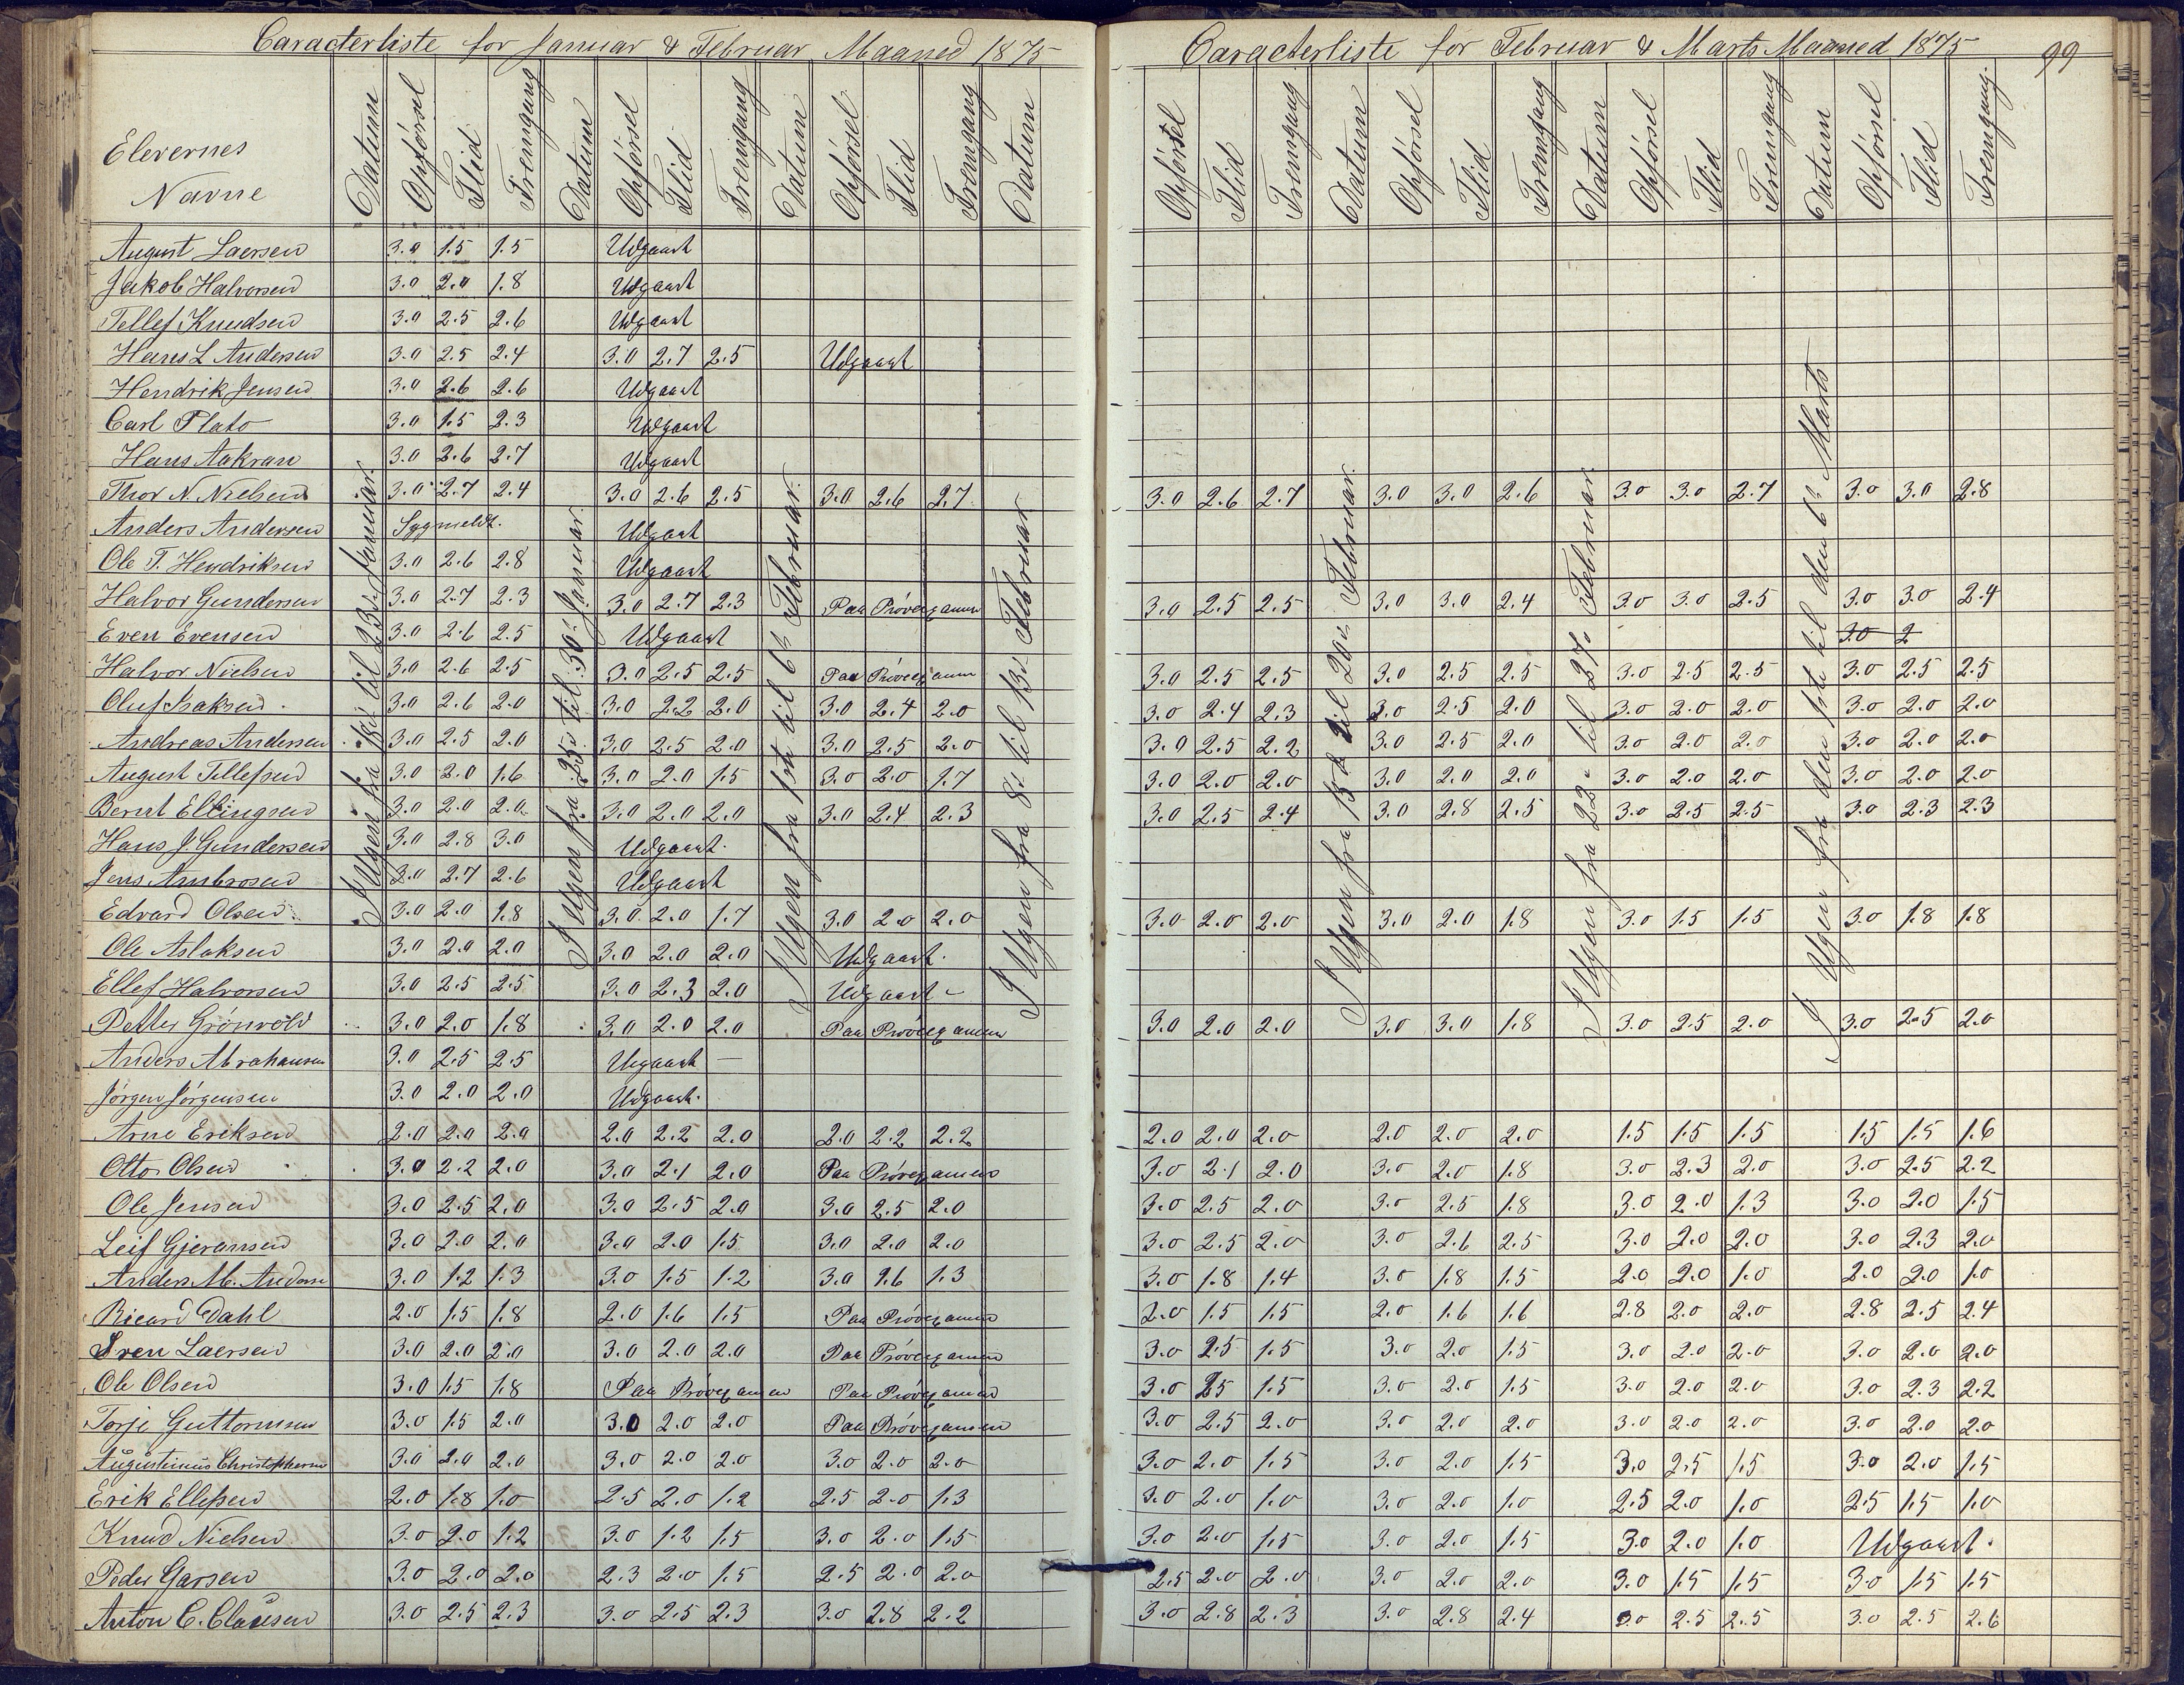 Caracterliste for Januar & Februar Maaned 1875
Caracterliste for Februar & Marts Maaned 1875 99
Elevernes Navne Datum Opförsel Flid Fremgang Datum Opförsel Flid Fremgang Datum Opförsel Flid Fremgang Datum Opförsel Flid Fremgang Datum Opförsel Flid Fremgang Datum Opförsel Flid Fremgang Datum Opförsel Flid Fremgang
I Ugen fra 18de til 23de Januar.
I Ugen fra 25de til 30te Januar.
I Ugen fra 1ste til 6te Februar.
I Ugen fra 8de til 13de Februar
I Ugen fra 15de til 20de Februar.
I Ugen fra 22de til 27de Februar.
I Ugen fra den 1ste til den 6te Marts
August Laersen 3.0 1.5 1.5 Udgaaet
Jakob Halvorsen 3.0 2.0 1.8 Udgaaet
Tellef Knudsen 3.0 2.5 2.6 Udgaaet
Hans L Andersen 3.0 2.5 2.4 3.0 2.7 2.5 Udgaaet
Hendrik Jensen 3.0 2.6 2.6 Udgaaet
Carl Plato 3.0 1.5 2.3 Udgaaet
Hans Aakran 3.0 2.6 2.7 Udgaaet
Thor N. Nielsen 3.0 2.7 2.4 3.0 2.6 2.5 3.0 2.6 2.7 3.0 2.6 2.7 3.0 3.0 2.6 3.0 3.0 2.7 3.0 3.0 2.8
Anders Andersen Sygmeldt. Udgaaet
Ole T. Hendriksen 3.0 2.6 2.8 Udgaaet
Halvor Gundersen 3.0 2.7 2.3 3.0 2.7 2.3 Paa Pröveexamen 3.0 2.5 2.5 3.0 3.0 2.4 3.0 3.0 2.5 3.0 3.0 2.4
Even Evensen 3.0 2.6 2.5 Udgaaet 3.0 2
Halvor Nielsen 3.0 2.6 2.5 3.0 2.5 2.5 Paa Pröveexamen 3.0 2.5 2.5 3.0 2.5 2.5 3.0 2.5 2.5 3.0 2.5 2.5
Oluf Isaksen 3.0 2.6 2.0 3.0 2.2 2.0 3.0 2.4 2.0 3.0 2.4 2.3 3.0 2.5 2.0 3.0 2.0 2.0 3.0 2.0 2.0
Andreas Andersen 3.0 2.5 2.0 3.0 2.5 2.0 3.0 2.5 2.0 3.0 2.5 2.2 3.0 2.5 2.0 3.0 2.0 2.0 3.0 2.0 2.0
August Tellefsen 3.0 2.0 1.6 3.0 2.0 1.5 3.0 2.0 1.7 3.0 2.0 2.0 3.0 2.0 2.0 3.0 2.0 2.0 3.0 2.0 2.0
Bernt Ellingsen 3.0 2.0 2.0 3.0 2.0 2.0 3.0 2.4 2.3 3.0 2.5 2.4 3.0 2.8 2.5 3.0 2.5 2.5 3.0 2.3 2.3
Hans J. Gundersen 3.0 2.8 3.0 Udgaaet.
Jens Ambrosen 3.0 2.7 2.6 Udgaaet
Edvard Olsen 3.0 2.0 1.8 3.0 2.0 1.7 3.0 2.0 2.0 3.0 2.0 2.0 3.0 2.0 1.8 3.0 1.5 1.5 3.0 1.8 1.8
Ole Aslaksen 3.0 2.0 2.0 3.0 2.0 2.0 Udgaaet.
Ellef Halvorsen 3.0 2.5 2.5 3.0 2.3 2.0 Udgaaet
Petter Grönvold 3.0 2.0 1.8 3.0 2.0 2.0 Paa Pröveexamen 3.0 2.0 2.0 3.0 3.0 1.8 3.0 2.5 2.0 3.0 2.5 2.0
Anders Abrahamsen 3.0 2.5 2.5 Udgaaet
Jörgen Jörgensen 3.0 2.0 2.0 Udgaaet.
Arne Eriksen 2.0 2.0 2.0 2.0 2.2 2.0 2.0 2.2 2.2 2.0 2.0 2.0 2.0 2.0 2.0 1.5 1.5 1.5 1.5 1.5 1.6
Otto Olsen 3.0 2.2 2.0 3.0 2.1 2.0 Paa Pröveexamen 3.0 2.1 2.0 3.0 2.0 1.8 3.0 2.3 2.0 3.0 2.5 2.2
Ole Jensen 3.0 2.5 2.0 3.0 2.5 2.0 3.0 2.5 2.0 3.0 2.5 2.0 3.0 2.5 1.8 3.0 2.0 1.3 3.0 2.0 1.5
Leif Gjeransen 3.0 2.0 2.0 3.0 2.0 1.5 3.0 2.0 2.0 3.0 2.5 2.0 3.0 2.6 2.5 3.0 2.0 2.0 3.0 2.3 2.0
Anders M. Anderse 3.0 1.2 1.3 3.0 1.5 1.2 3.0 1.6 1.3 3.0 1.8 1.4 3.0 1.8 1.5 2.0 2.0 1.0 2.0 2.0 1.0
Ricard Dahl 2.0 1.5 1.8 2.0 1.6 1.5 Paa Pröveexamen 2.0 1.5 1.5 2.0 1.6 1.6 2.8 2.0 2.0 2.8 2.5 2.4
Sven Laersen 3.0 2.0 2.0 3.0 2.0 2.0 Paa Pröveexamen 3.0 2.5 1.5 3.0 2.0 1.5 3.0 2.0 2.0 3.0 2.0 2.0
Ole Olsen 3.0 1.5 1.8 Paa Pröveexamen Paa Pröveexamen 3.0 2.5 1.5 3.0 2.0 1.5 3.0 2.0 2.0 3.0 2.3 2.2
Torje Guttormsen 3.0 1.5 2.0 3.0 2.0 2.0 Paa Pröveexamen 3.0 2.5 2.0 3.0 2.0 2.0 3.0 2.0 2.0 3.0 2.0 2.0
Augustinus Christophersen 3.0 2.0 2.0 3.0 2.0 2.0 3.0 2.0 2.0 3.0 2.0 1.5 3.0 2.0 1.5 3.0 2.5 1.5 3.0 2.0 1.5
Erik Ellefsen 2.0 1.8 1.0 2.5 2.0 1.2 2.5 2.0 1.3 3.0 2.0 1.0 3.0 2.0 1.0 2.5 2.0 1.0 2.5 1.5 1.0
Knud Nielsen 3.0 2.0 1.2 3.0 1.2 1.5 3.0 2.0 1.5 3.0 2.0 1.5 3.0 2.0 1.5 3.0 2.0 1.0 Udgaaet.
Peder Garsen 3.0 2.0 2.0 2.3 2.0 1.5 2.5 2.0 2.0 2.5 2.0 2.0 3.0 2.0 2.0 3.0 1.5 1.5 3.0 1.5 1.5
Anton C. Clausen 3.0 2.5 2.3 3.0 2.5 2.3 3.0 2.8 2.2 3.0 2.8 2.3 3.0 2.8 2.4 3.0 2.5 2.5 3.0 2.5 2.6